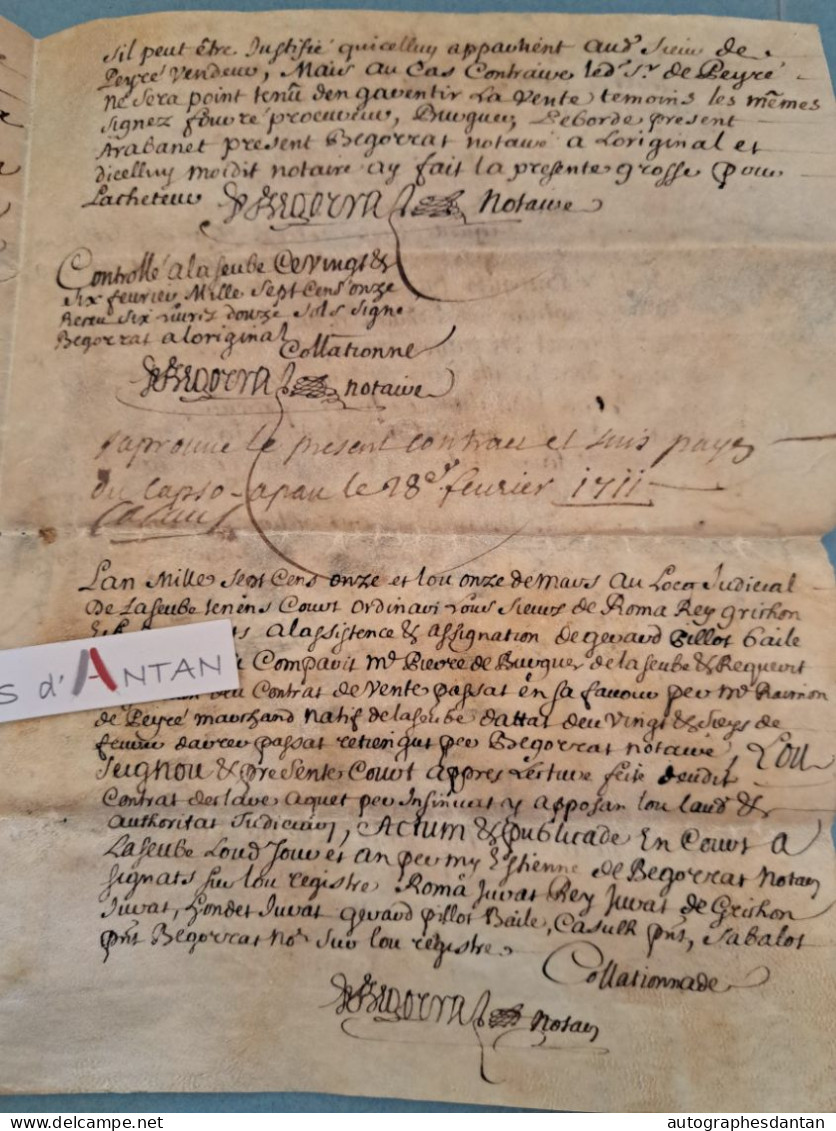 sil peut être Justifié quicelluy appartient aud. sieur de
Peyré Vendeur, Mais au Cas Contraire led. Sr. de Peyré
ne sera point tenu den garentir La Vente temoins les mêmes
signez fouvré procureur, Burguer, Leborde present
Arabanet present Begorrat notaire a Loriginal et
dicelluy moidit notaire ay fait la presente grosse pour
Lacheteur De Begorra Notaire
Controllé a laseube Ce Vingt &
six fevrier Mille sept Cens onze
Receu six livres douze sols signe
Begorrat a loriginal
Collationne
De Begorra notaire
Japrouve le present contract et suis payé
du Capso a pau le 28e. fevrier 1711
Lan Mille sept Cens onze et lou onze de mars au Loco Judicial
De Laseube tenens Court ordinari Lous sieurs de Roma Rey grishon
a lassistence & assignation de geraud pillot baile
Comparit Me. Pierre de Burguer de laseube & Requerit
deu Contrat de Vente passat en sa favour per Me. Raimon
de Peyré marchand natif de laseube dattat deu vingt & sieys de
fevrer darrer passat retiengut per Begorrat notaire, Lou
Seignou & presente Court appres Lecture feite deudit
Contrat declare aquet per Insinuat y apposan lou laud &
Authoritat Judiciari, Actum & publicade En Court a
Laseube Loud. Jour et an per my Estienne de Begorrat Notari
signats su lou registre Roma Jurat Rey Jurat de Grishon
Jurat, Londet Jurat geraud pillot Baile, Casulh pnt, Sabalot
pnt Begorrat nore. sur lou registre.
Collationnade
De Begorra Notari
S d'ANTAN
delcampe.net
autographesdantan